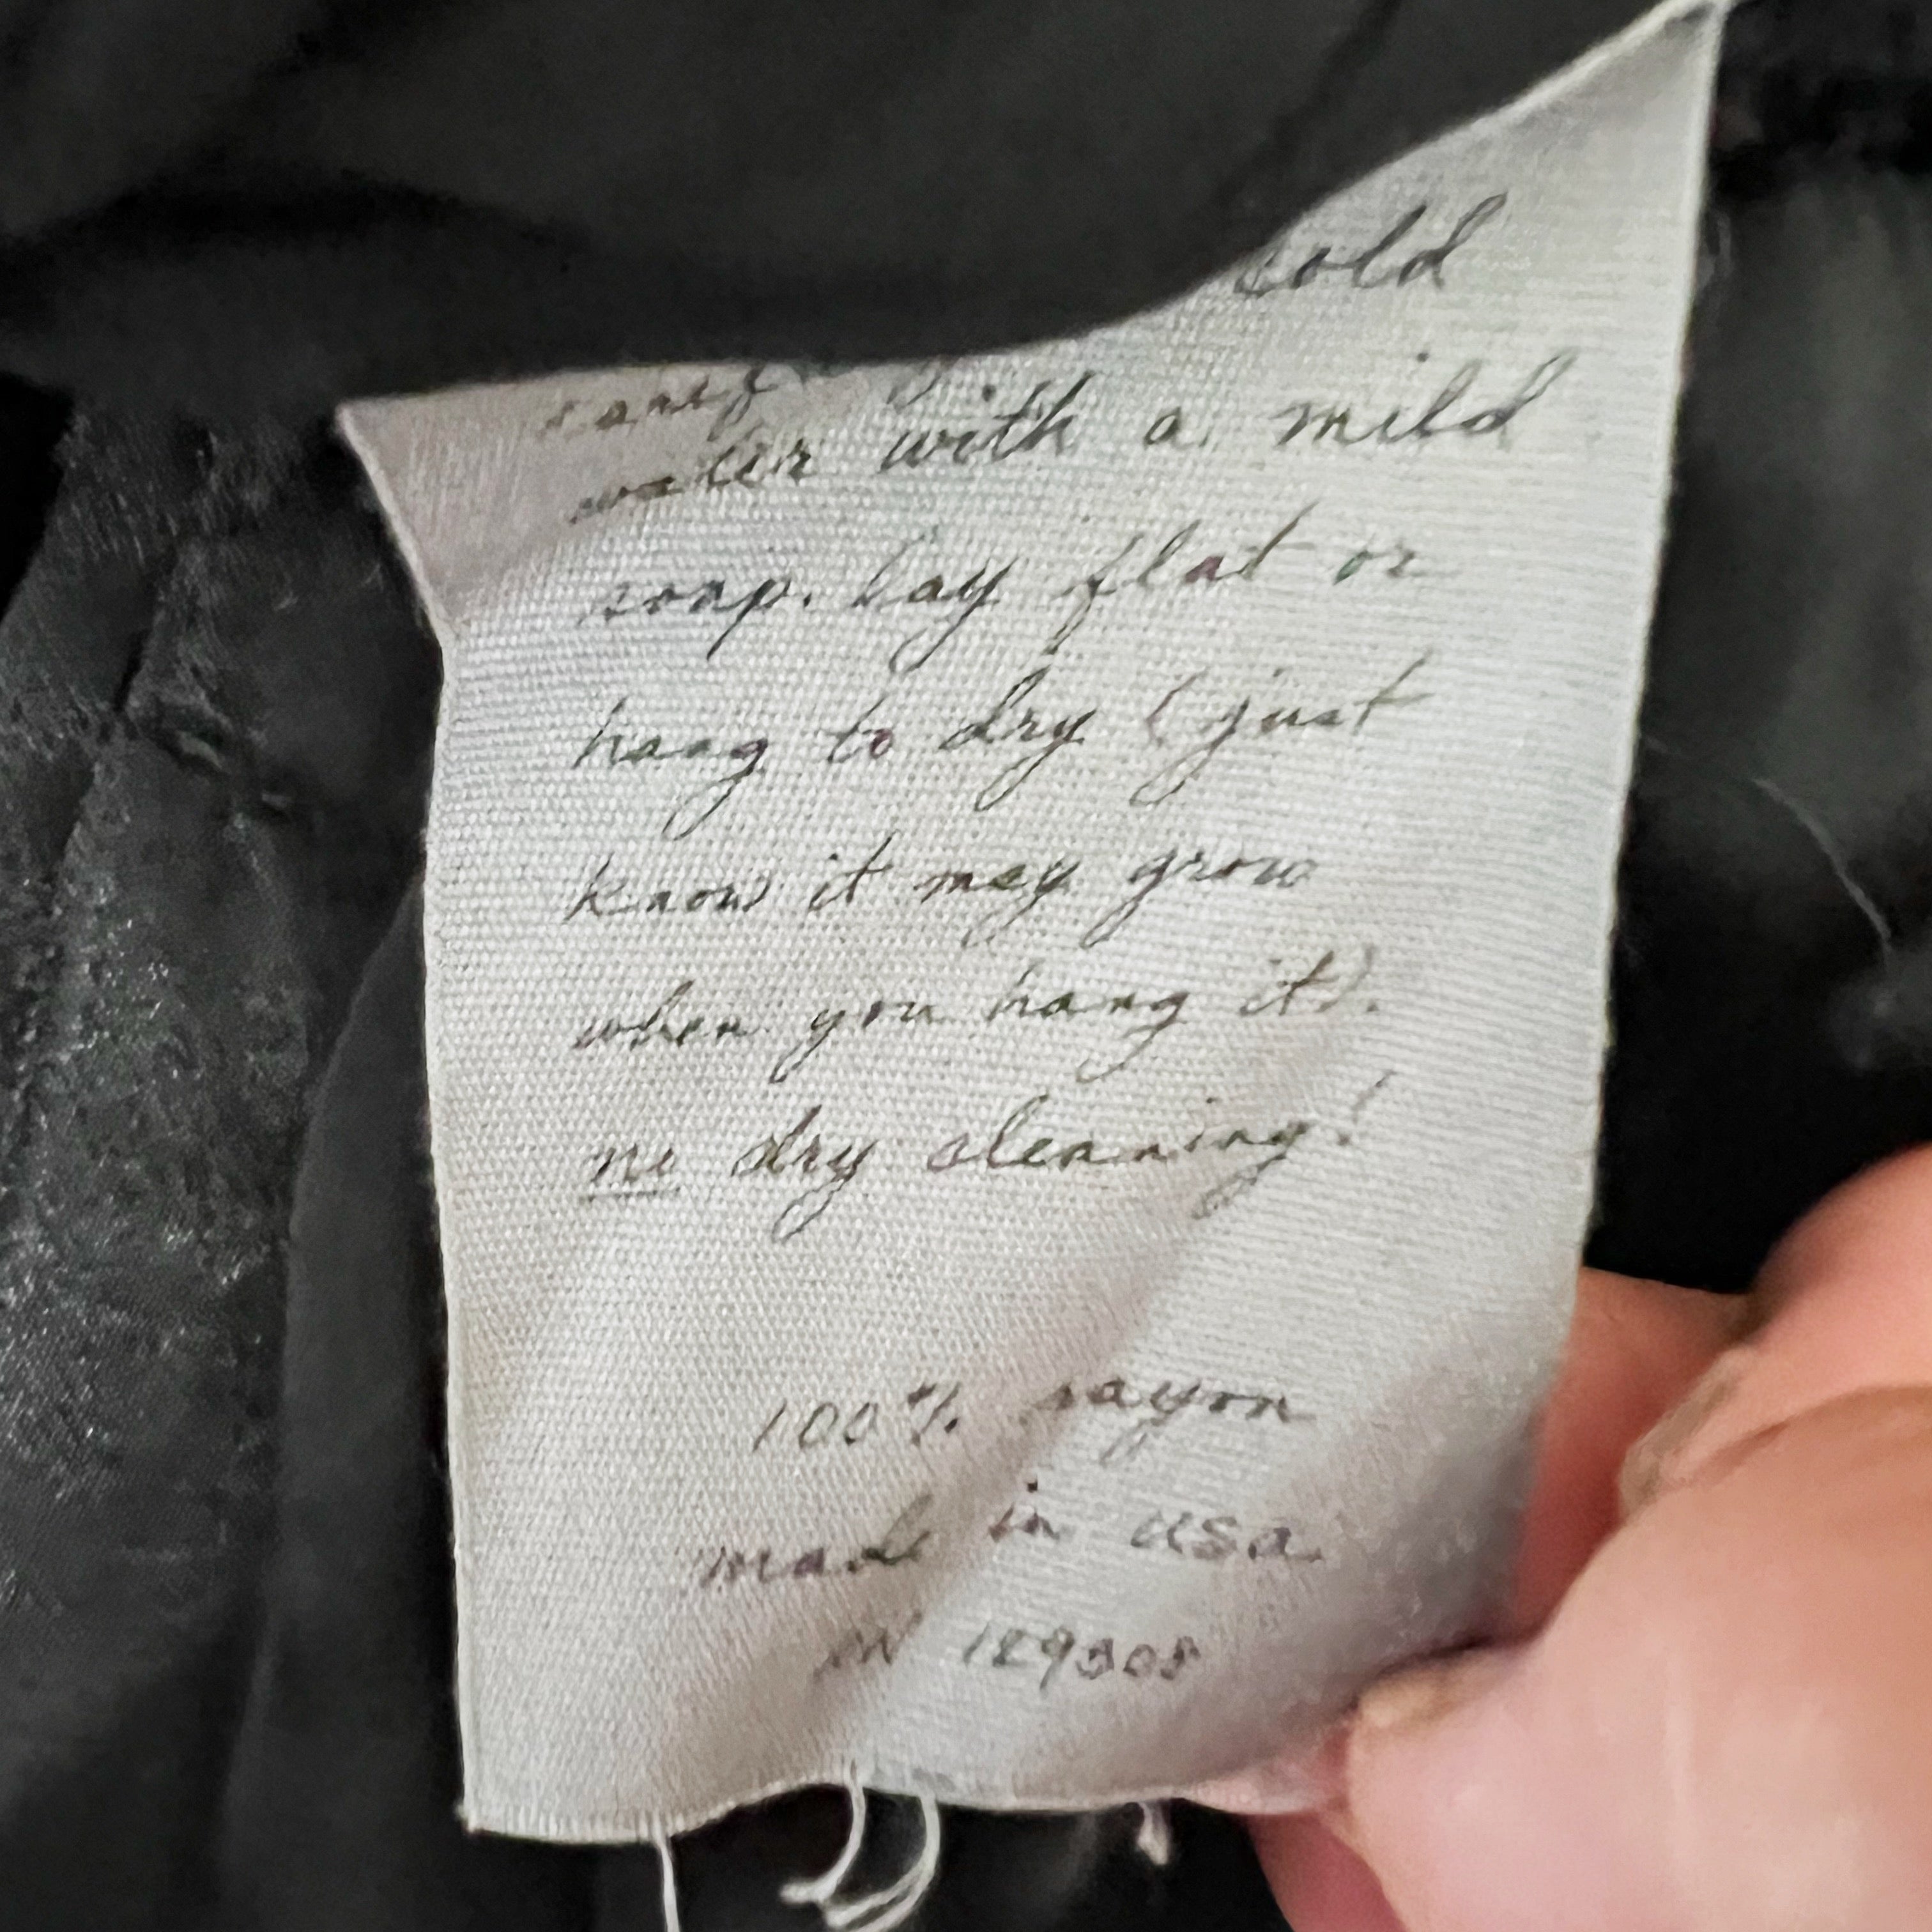 cold
water with a mild
soap. lay flat or
hang to dry (just
know it may grow
when you hang it).
no dry cleaning!
100% rayon
made in usa